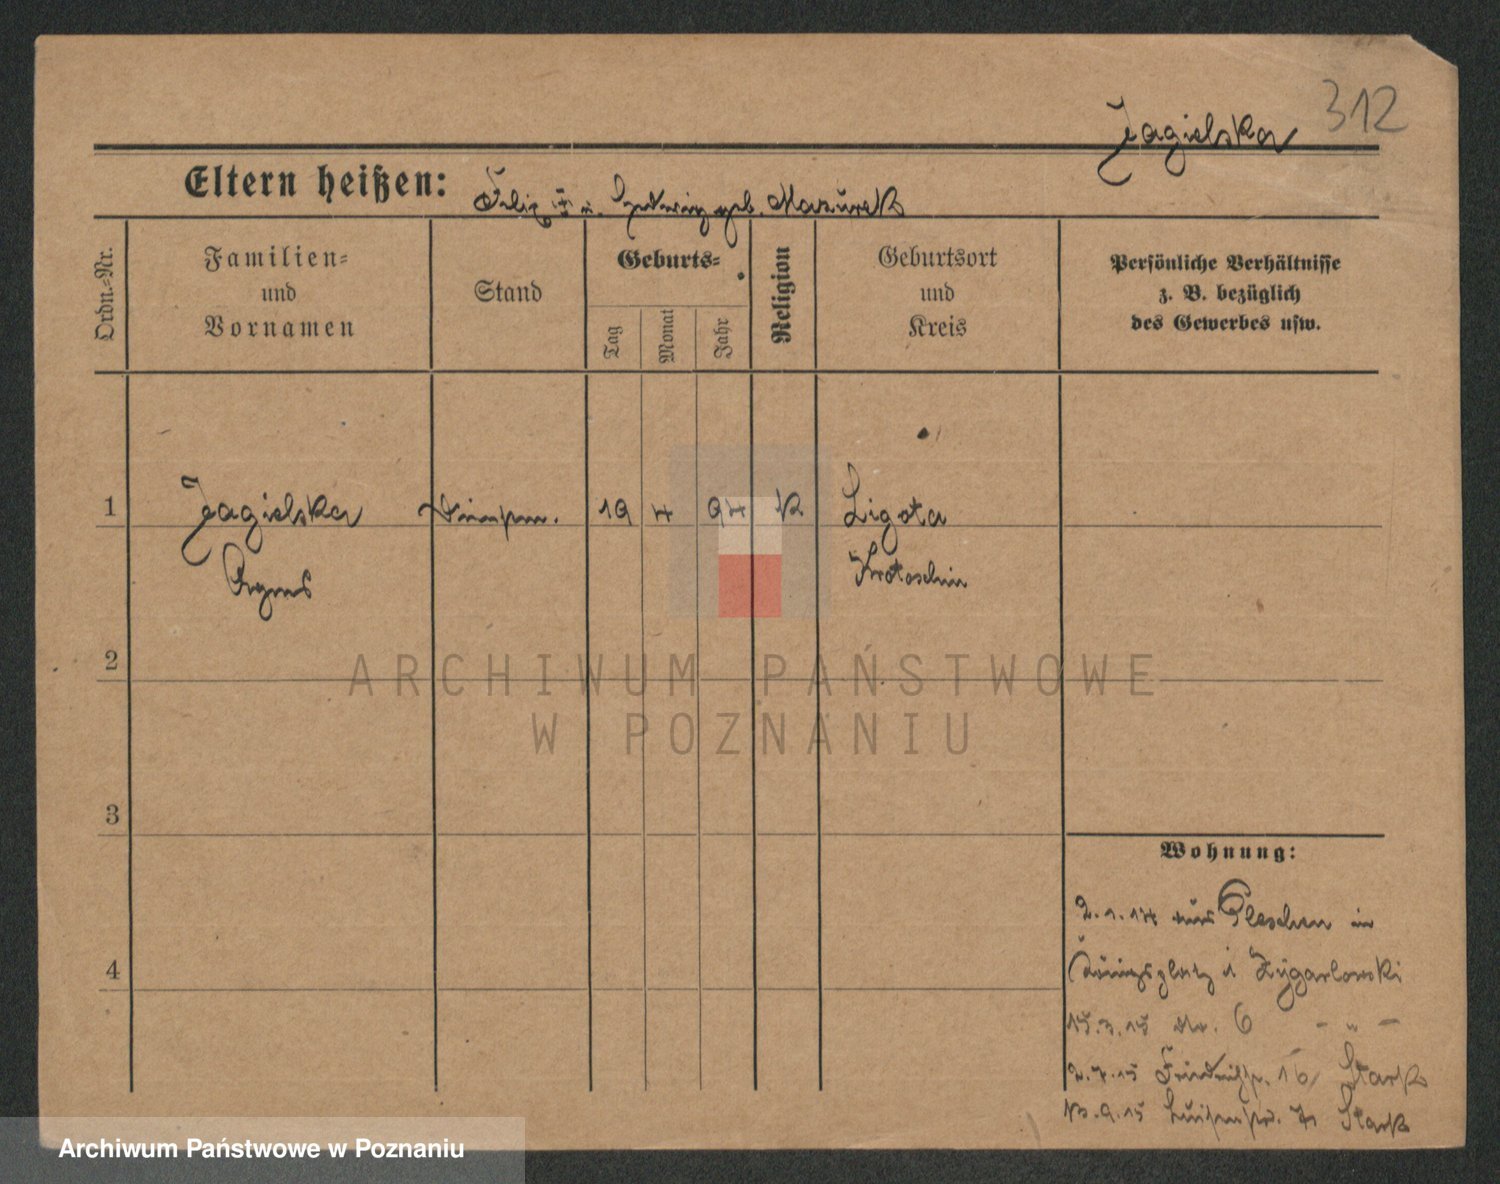 312
Jagielska
Eltern heißen: Felix u. Hedwig geb. Mazurek
Ordn.=Nr.
Familien=
und
Vornamen
Stand
Geburts=
Tag
Monat
Jahr
Religion
Geburtsort
und
Kreis
Persönliche Verhältnisse
z. B. bezüglich
des Gewerbes usw.
1 Jagielska 19 4 94 K Ligota
Agnes Krotoschin
2
3
4
Wohnung:
2.1.14 aus Pleschen in
Königsplatz Zygarlowski
15.3.15 6 - " -
2.4.15 Friedrichstr. 16 Stark
Stark
ARCHIWUM PAŃSTWOWE
W POZNANIU
Archiwum Państwowe w Poznaniu